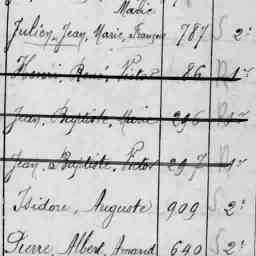 Marie
Julien, Jean, Marie, François 787 S 2ᵉ
Henri, René, Victor 86 R 1ᵉʳ
Jean, Baptiste, Marie 296 R 1ᵉʳ
Jean, Baptiste, Victor 297 R 1ᵉʳ
Isidore, Auguste 909 S 2ᵉ
Pierre, Albert, Amand 640 S 2ᵉ